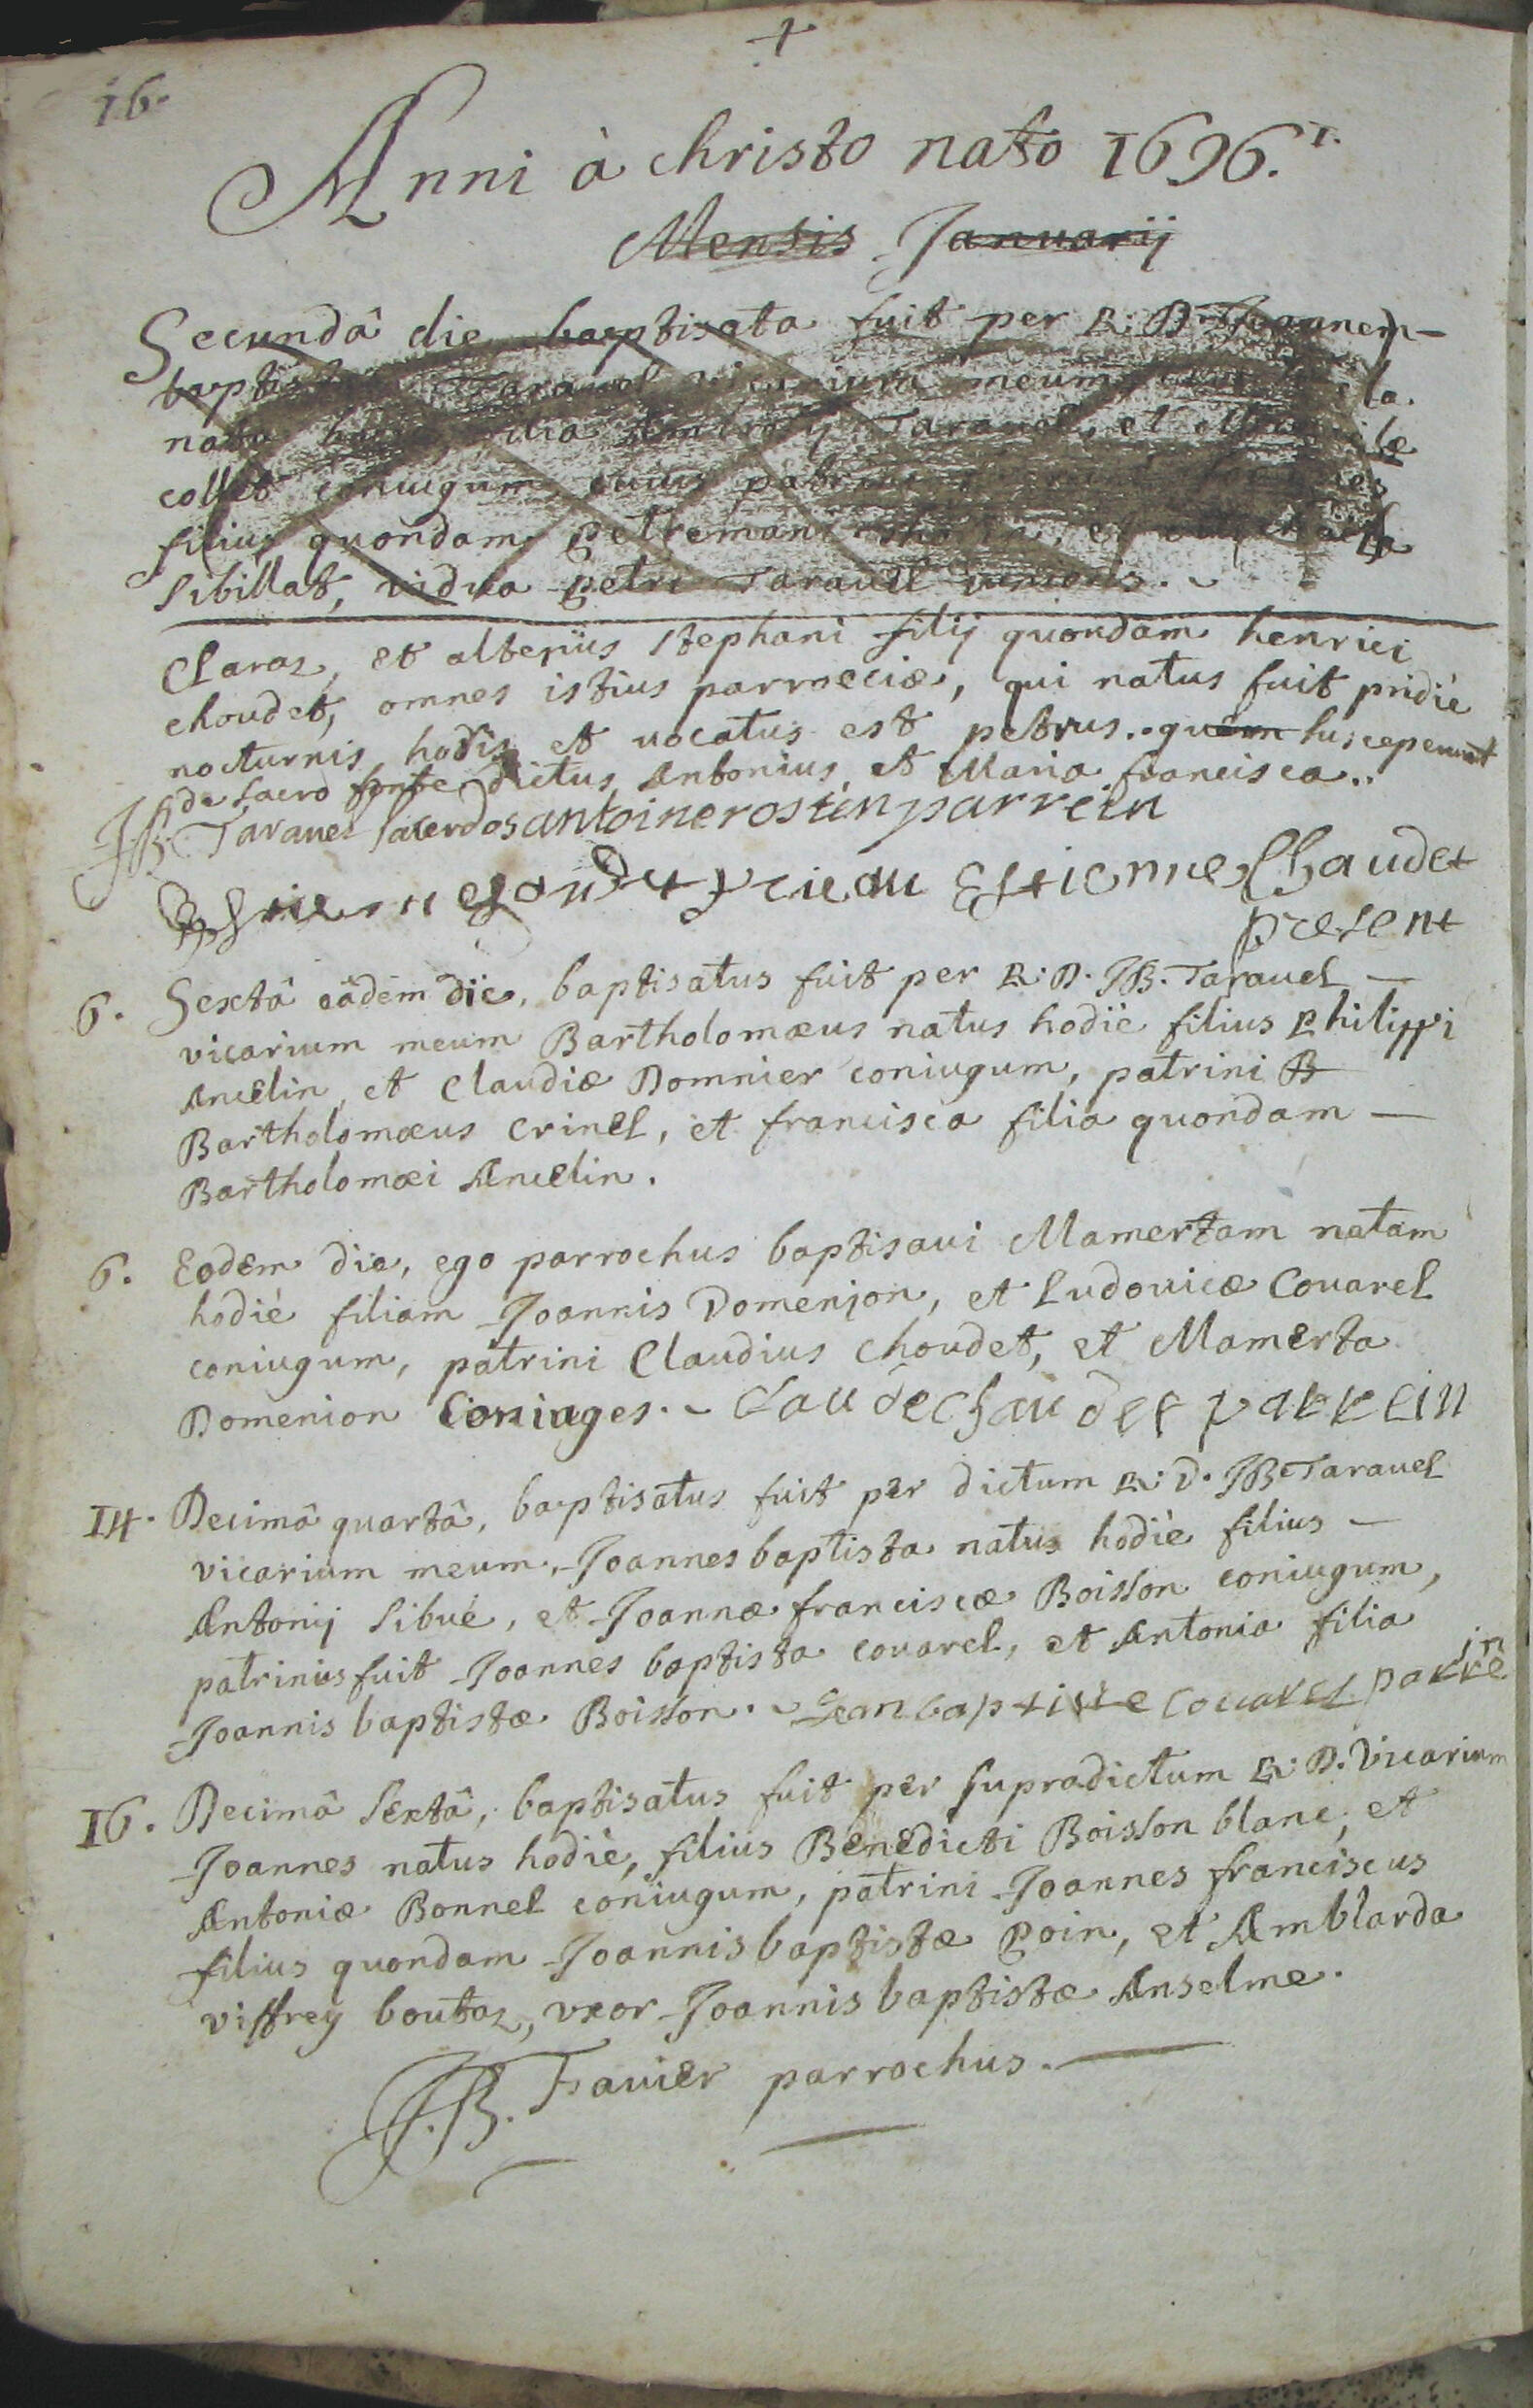 +
16.
Anni à christo nato 1696. 1.
Mensis Januarij
Secundâ die baptisata fuit per R: D. Joannem
baptistam Taravel vicarium meum la.
nata hodie filia Amb Taravel, et
collet coniugum, cuius patrini
filius quondam Petremani et
Sibillat, vidua Petri Taravel iunioris.
Claraz, et alterius Stephani filij quondam henrici
choudet, omnes istius parrœciæ, qui natus fuit pridiè
nocturnis horis et vocatus est petrus. quem susceperunt
de sacro fonte dictus Antonius et Maria francisca..
JB Taravel sacerdos antoine rostein parrein
Estienne Chaudet
present
6. Sextâ eâdem die, baptisatus fuit per R: D. JB. Taravel
vicarium meum Bartholomæus natus hodiè filius Philippi
Ancelin, et Claudiæ Domnier coniugum, patrini B
Bartholomæus Crinel, et francisca filia quondam
Bartholomæi Ancelin.
6. Eodem die, ego parrochus baptisavi Mamertam natam
hodiè filiam Joannis Domenjon, et Ludovicæ Couarel
coniugum, patrini Claudius choudet, et Mamerta
Domenion Coniuges. Claude chaudet parrein
14. Decimâ quartâ, baptisatus fuit per dictum R: D. JB Taravel
vicarium meum, Joannes baptista natus hodiè filius
Antonij Sibué, et Joannæ franciscæ Boisson coniugum,
patrinus fuit Joannes baptista couarel, et Antonia filia
Joannis baptistæ Boisson. Jean baptiste Couarel parrein
16. Decimâ Sextâ, baptisatus fuit per supradictum R: D. Vicarium
Joannes natus hodiè, filius Benedicti Boisson blanc, et
Antoniæ Bonnel coniugum, patrini Joannes franciscus
filius quondam Joannis baptistæ Poin, et Amblarda
viffrey boutaz, uxor Joannis baptistæ Anselme.
J.B. Favier parrochus.